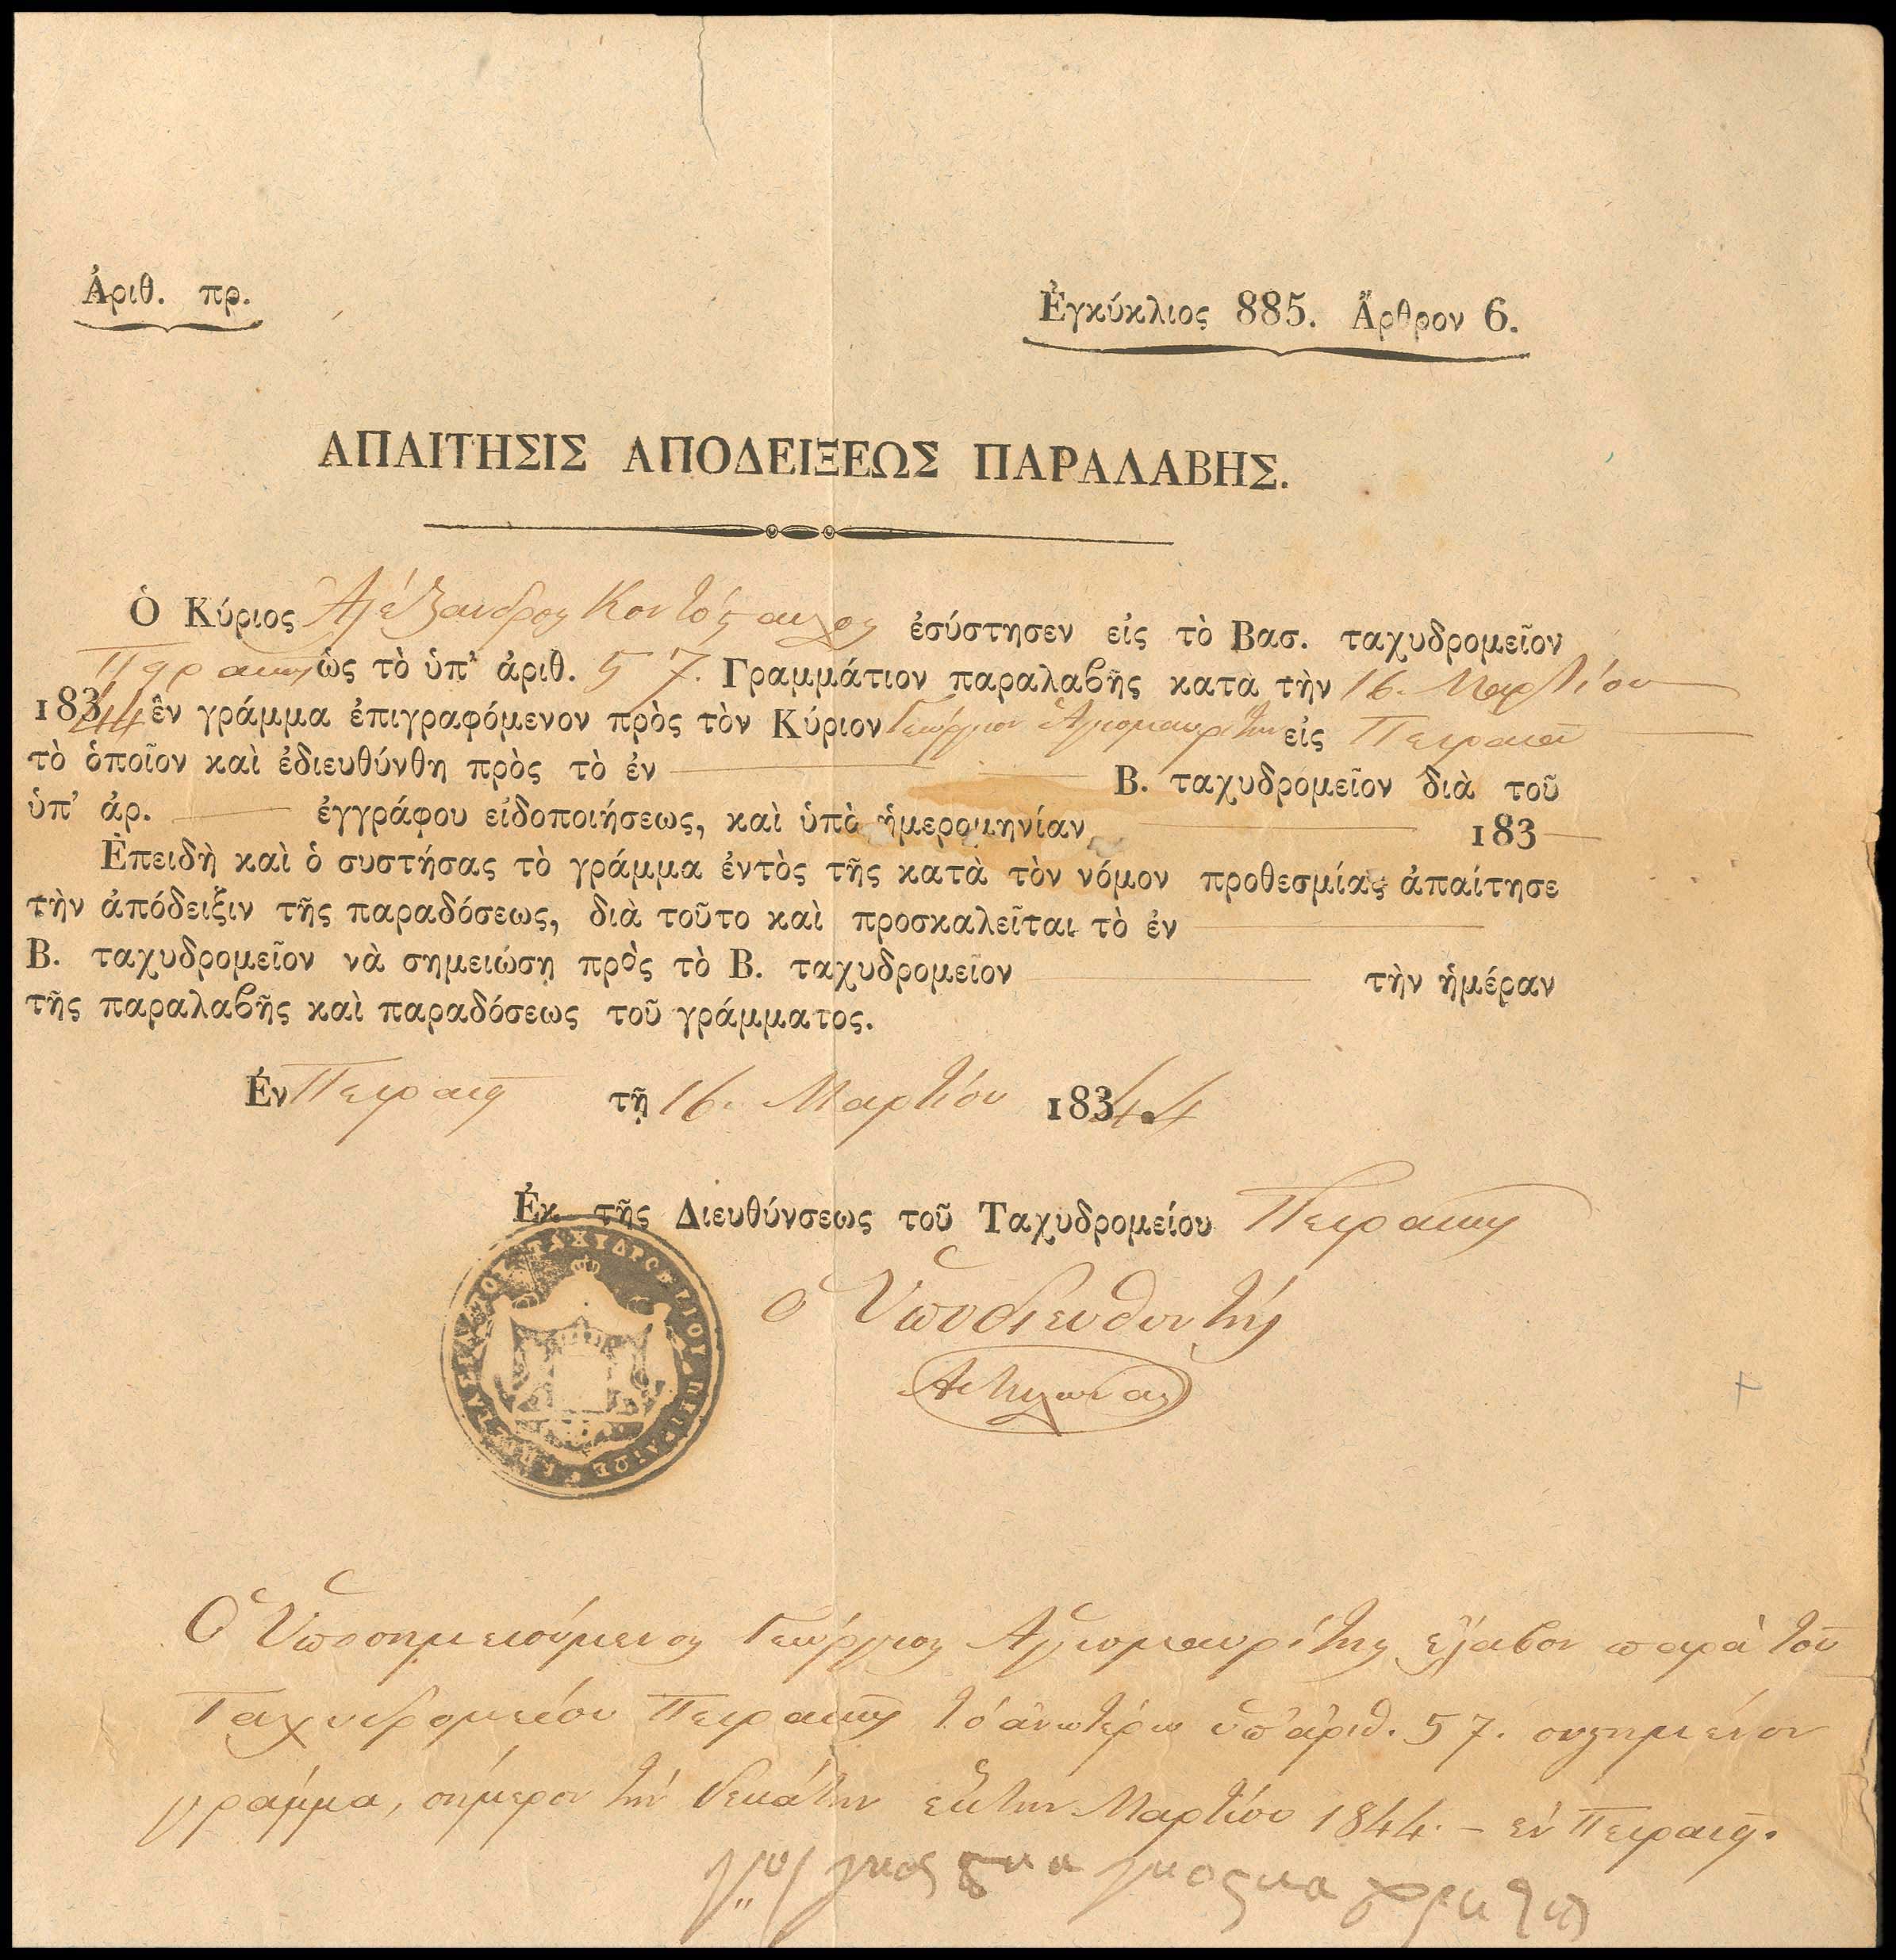 Ἀριθ. πρ.
Ἐγκύκλιος 885. Ἄρθρον 6.
ΑΠΑΙΤΗΣΙΣ ΑΠΟΔΕΙΞΕΩΣ ΠΑΡΑΛΑΒΗΣ.
Ὁ Κύριος Ἀλέξανδρος Κοντόσταυλος ἐσύστησεν εἰς τὸ Βασ. ταχυδρομεῖον
Πειραιῶς ὡς τὸ ὑπ' ἀριθ. 57. Γραμμάτιον παραλαβῆς κατὰ τὴν 16. Μαρτίου
18344 ἓν γράμμα ἐπιγραφόμενον πρὸς τὸν Κύριον Γεώργιον Ἁγιομαυρίτην εἰς Πειραιᾶ
τὸ ὁποῖον καὶ ἐδιευθύνθη πρὸς τὸ ἐν Β. ταχυδρομεῖον διὰ τοῦ
ὑπ' ἀρ. ἐγγράφου εἰδοποιήσεως, καὶ ὑπὸ ἡμερομηνίαν 183
Ἐπειδὴ καὶ ὁ συστήσας τὸ γράμμα ἐντὸς τῆς κατὰ τὸν νόμον προθεσμίας ἀπαίτησε
τὴν ἀπόδειξιν τῆς παραδόσεως, διὰ τοῦτο καὶ προσκαλεῖται τὸ ἐν
Β. ταχυδρομεῖον νὰ σημειώσῃ πρὸς τὸ Β. ταχυδρομεῖον τὴν ἡμέραν
τῆς παραλαβῆς καὶ παραδόσεως τοῦ γράμματος.
Ἐν Πειραιεῖ τῇ 16. Μαρτίου 18344.
Ἐκ τῆς Διευθύνσεως τοῦ Ταχυδρομείου Πειραιῶς
Ὁ Ὑποδιευθυντής
ΤΑΧΥΔΡΟΜΕΙΟΥ ΠΕΙΡΑΙΩΣ
Ὁ Ὑποσημειούμενος Γεώργιος Ἁγιομαυρίτης ἔλαβον παρὰ τοῦ
Ταχυδρομείου Πειραιῶς τὸ ἀνωτέρω ὑπ' ἀριθ. 57. συστημένον
γράμμα, σήμερον τὴν δεκάτην ἕκτην Μαρτίου 1844. – ἐν Πειραιεῖ.